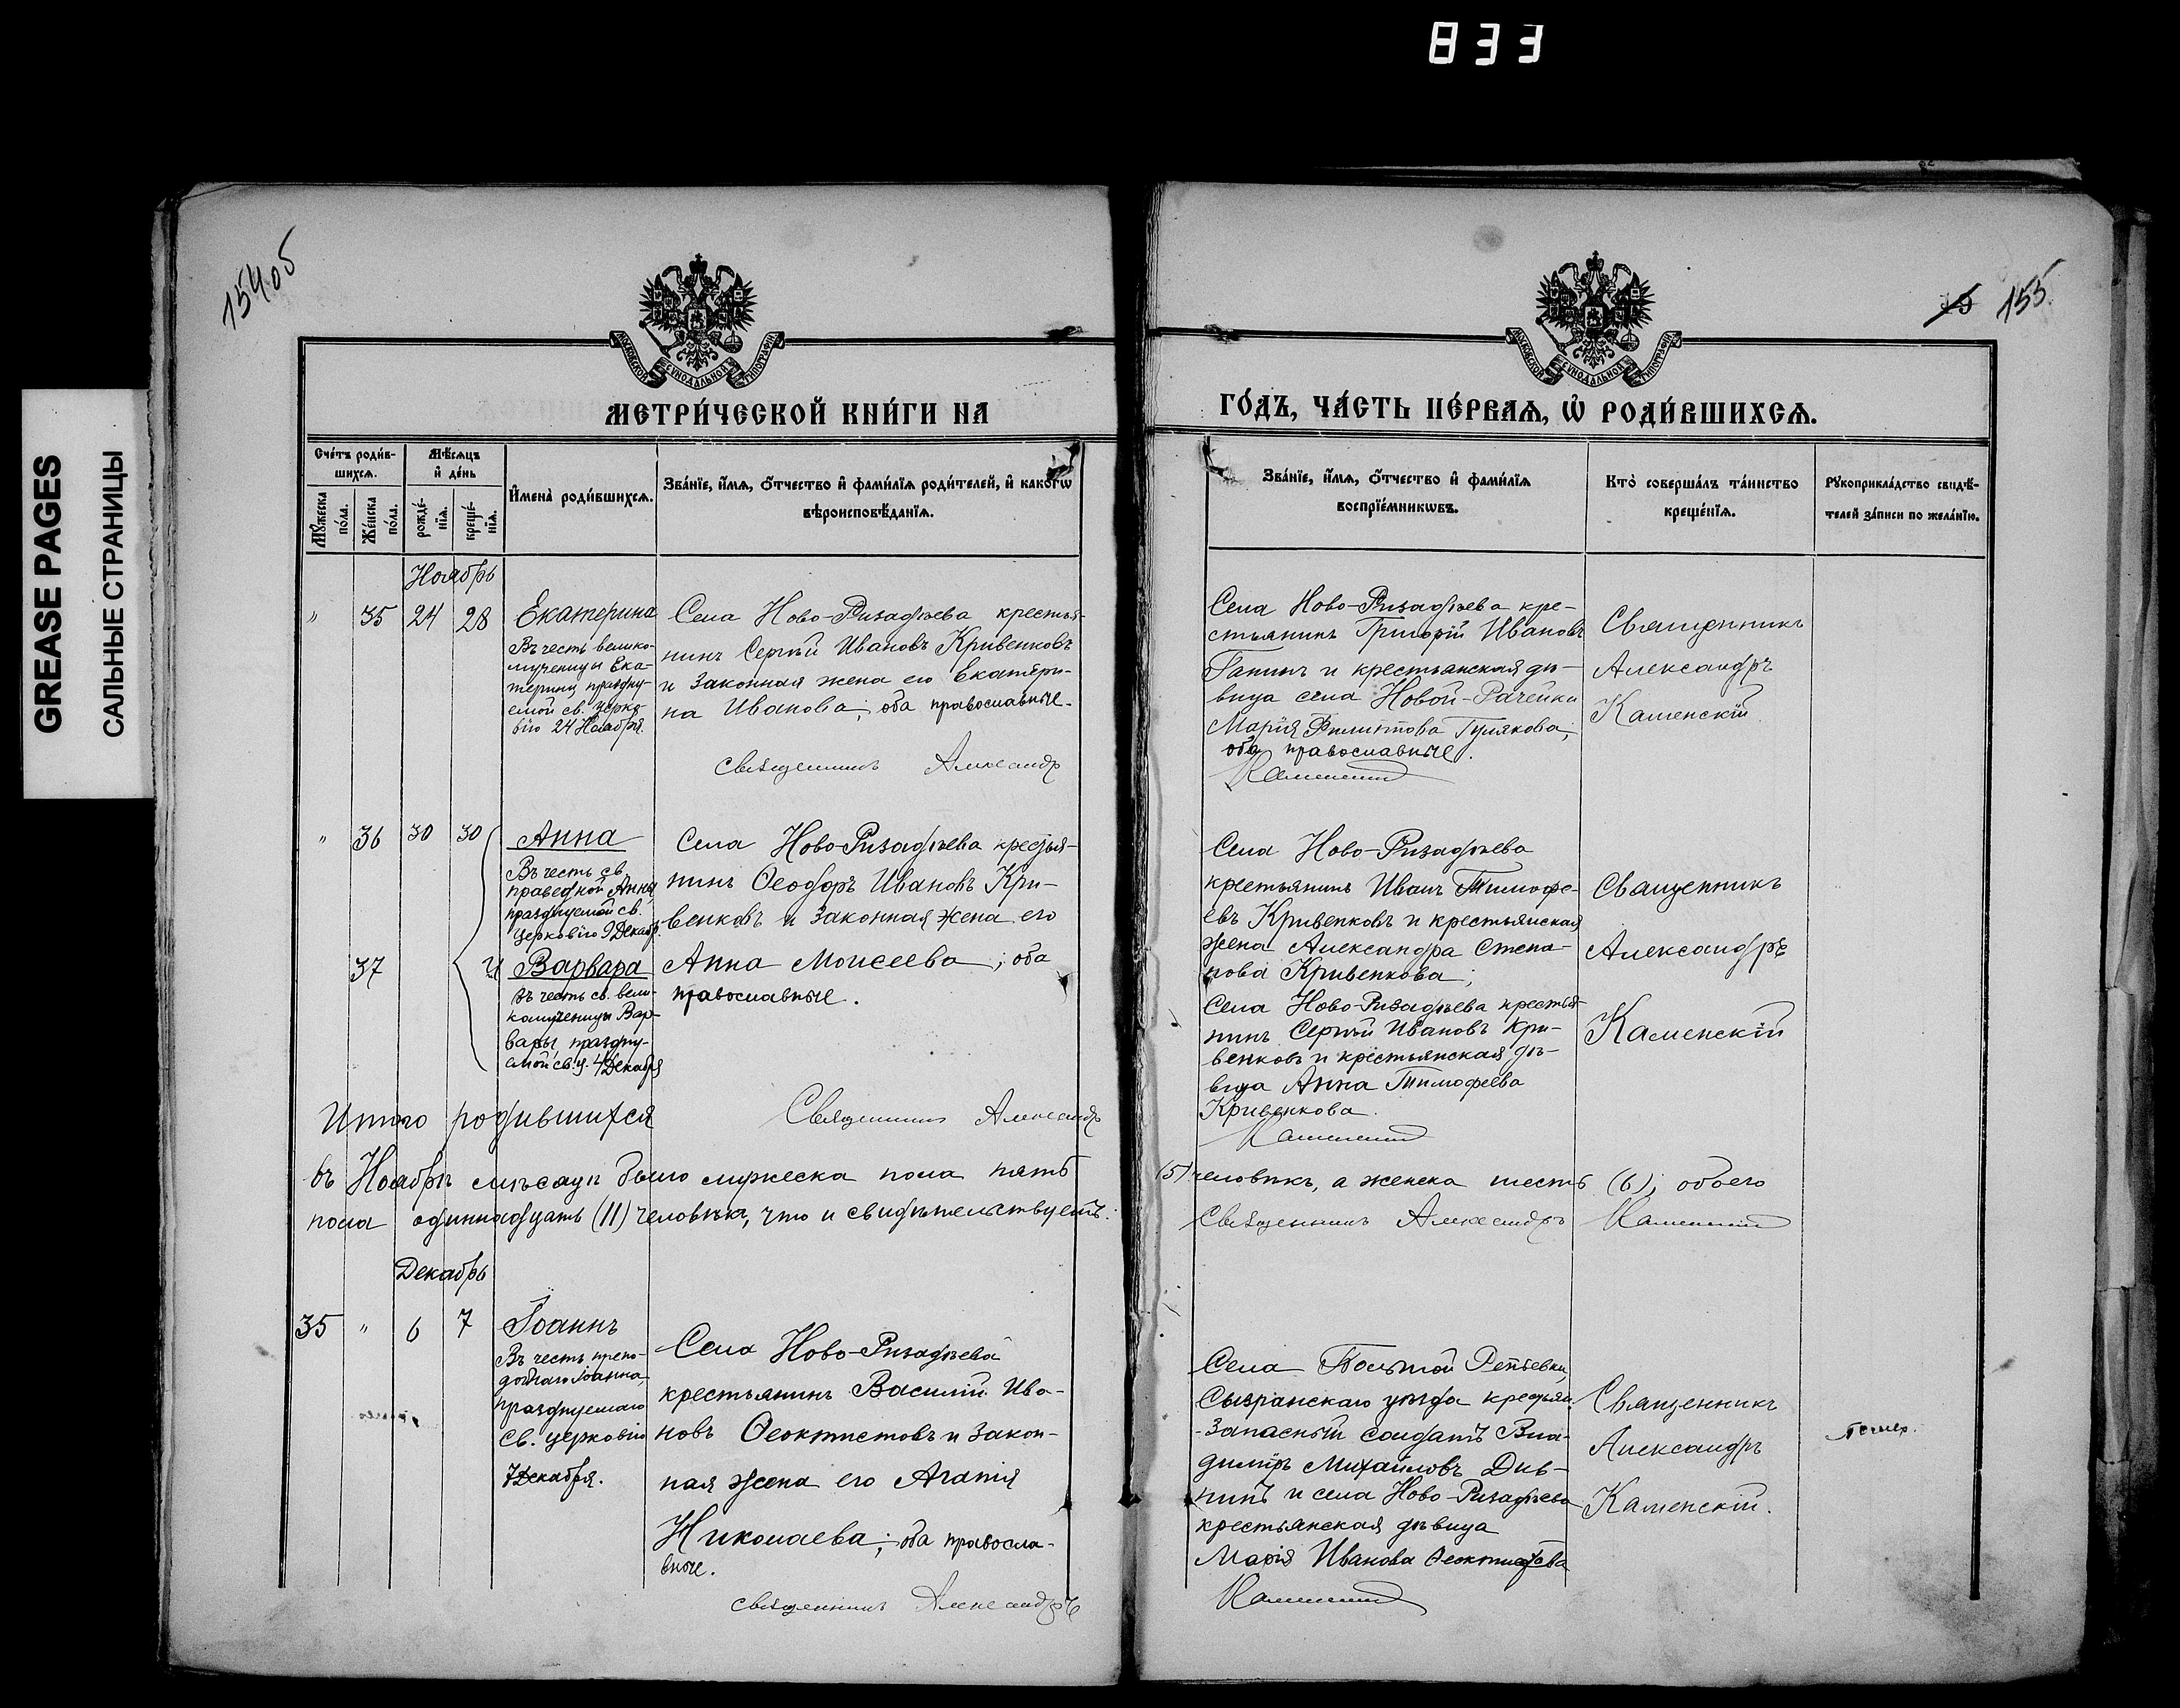 833
GREASE PAGES
САЛЬНЫЕ СТРАНИЦЫ
154об
155
МОСКОВСКОЙ СѴНОДАЛЬНОЙ ТИПОГРАФІИ
МОСКОВСКОЙ СѴНОДАЛЬНОЙ ТИПОГРАФІИ
МЕТРИ́ЧЕСКОЙ КНИ́ГИ НА
ГО́ДЪ, ЧА́СТЬ ПЕ́РВАѦ, Ѡ҆ РОДИ́ВШИХСѦ.
Сче́тъ роди́в-
шихсѧ.
Мꙋ́жеска по́ла.
Же́нска по́ла.
Мѣ́сѧцъ
и҆ де́нь
рожде́-нїѧ.
креще́-нїѧ.
И҆мена̀ роди́вшихсѧ.
Зва́нїе, и҆́мѧ, ѻ҆́тчество и҆ фами́лїѧ роди́телей, и҆ како́гѡ
вѣроисповѣ́данїѧ.
Зва́нїе, и҆́мѧ, ѻ҆́тчество и҆ фами́лїѧ
воспрїе́мникѡвъ.
Кто̀ соверша́лъ та́инство
креще́нїѧ.
Рꙋкоприкла́дство свидѣ́-
телей за́писи по жела́нїю.
Ноябрь
" 35 24 28
Екатерина
Въ честь велико-
мученицы Ека-
терины праздну-
емой св. церко-
вію 24 Ноября.
Села Ново-Ризадѣева крестья-
нинъ Сергѣй Ивановъ Кривенковъ
и законная жена его Екатери-
на Иванова; оба православные.
Священникъ Александръ
Села Ново-Ризадѣева кре-
стьянинъ Григорій Ивановъ
Ганинъ и крестьянская дѣ-
вица села Новой-Рачейки
Марія Филиппова Гулякова;
оба православные.
Каменскій
Священникъ
Александръ
Каменскій
" 36 30 30
Анна
Въ честь св.
праведной Анны,
празднуемой св.
церковію 9 Декабр.
37 и Варвара
въ честь св. вели-
комученицы Вар-
вары праздну-
емой св. ц. 4 Декабря
Села Ново-Ризадѣева крестья-
нинъ Ѳеодоръ Ивановъ Кри-
венковъ и законная жена его
Анна Моисеева; оба
православные.
Священникъ Александръ
Села Ново-Ризадѣева
крестьянинъ Иванъ Тимофе-
евъ Кривенковъ и крестьянская
жена Александра Степа-
нова Кривенкова;
Села Ново-Ризадѣева крестья-
нинъ Сергѣй Ивановъ Кри-
венковъ и крестьянская дѣ-
вица Анна Тимофеева
Кривенкова.
Каменскій
Священникъ
Александръ
Каменскій
Итого родившихся
въ Ноябрѣ мѣсяцѣ было мужеска пола пять (5) человѣкъ, а женска шесть (6); обоего
пола одиннадцать (11) человѣкъ, что и свидѣтельствуетъ: Священникъ Александръ Каменскій
Декабрь
35 " 6 7
Іоаннъ
Въ честь препо-
добнаго Іоанна,
празднуемаго
св. церковію
7 Декабря.
Села Ново-Ризадѣева
крестьянинъ Василій Ива-
новъ Ѳеоктистовъ и закон-
ная жена его Агапія
Николаева; оба правосла-
вные.
Священникъ Александръ
Села Большой Репьевки,
Сызранскаго уѣзда крестьян.
-запасный солдатъ Вла-
диміръ Михайловъ Див-
нинъ и села Ново-Ризадѣева
крестьянская дѣвица
Марія Иванова Ѳеоктистова
Каменскій
Священникъ
Александръ
Каменскій.